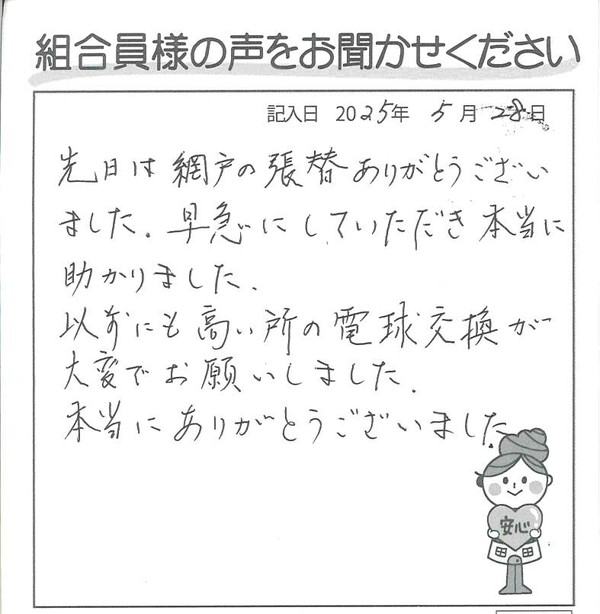 組合員様の声をお聞かせください
記入日 2025年 5月 28日
先日は網戸の張替ありがとうござい
ました。早急にしていただき本当に
助かりました。
以前にも高い所の電球交換が
大変でお願いしました。
本当にありがとうございました
安心